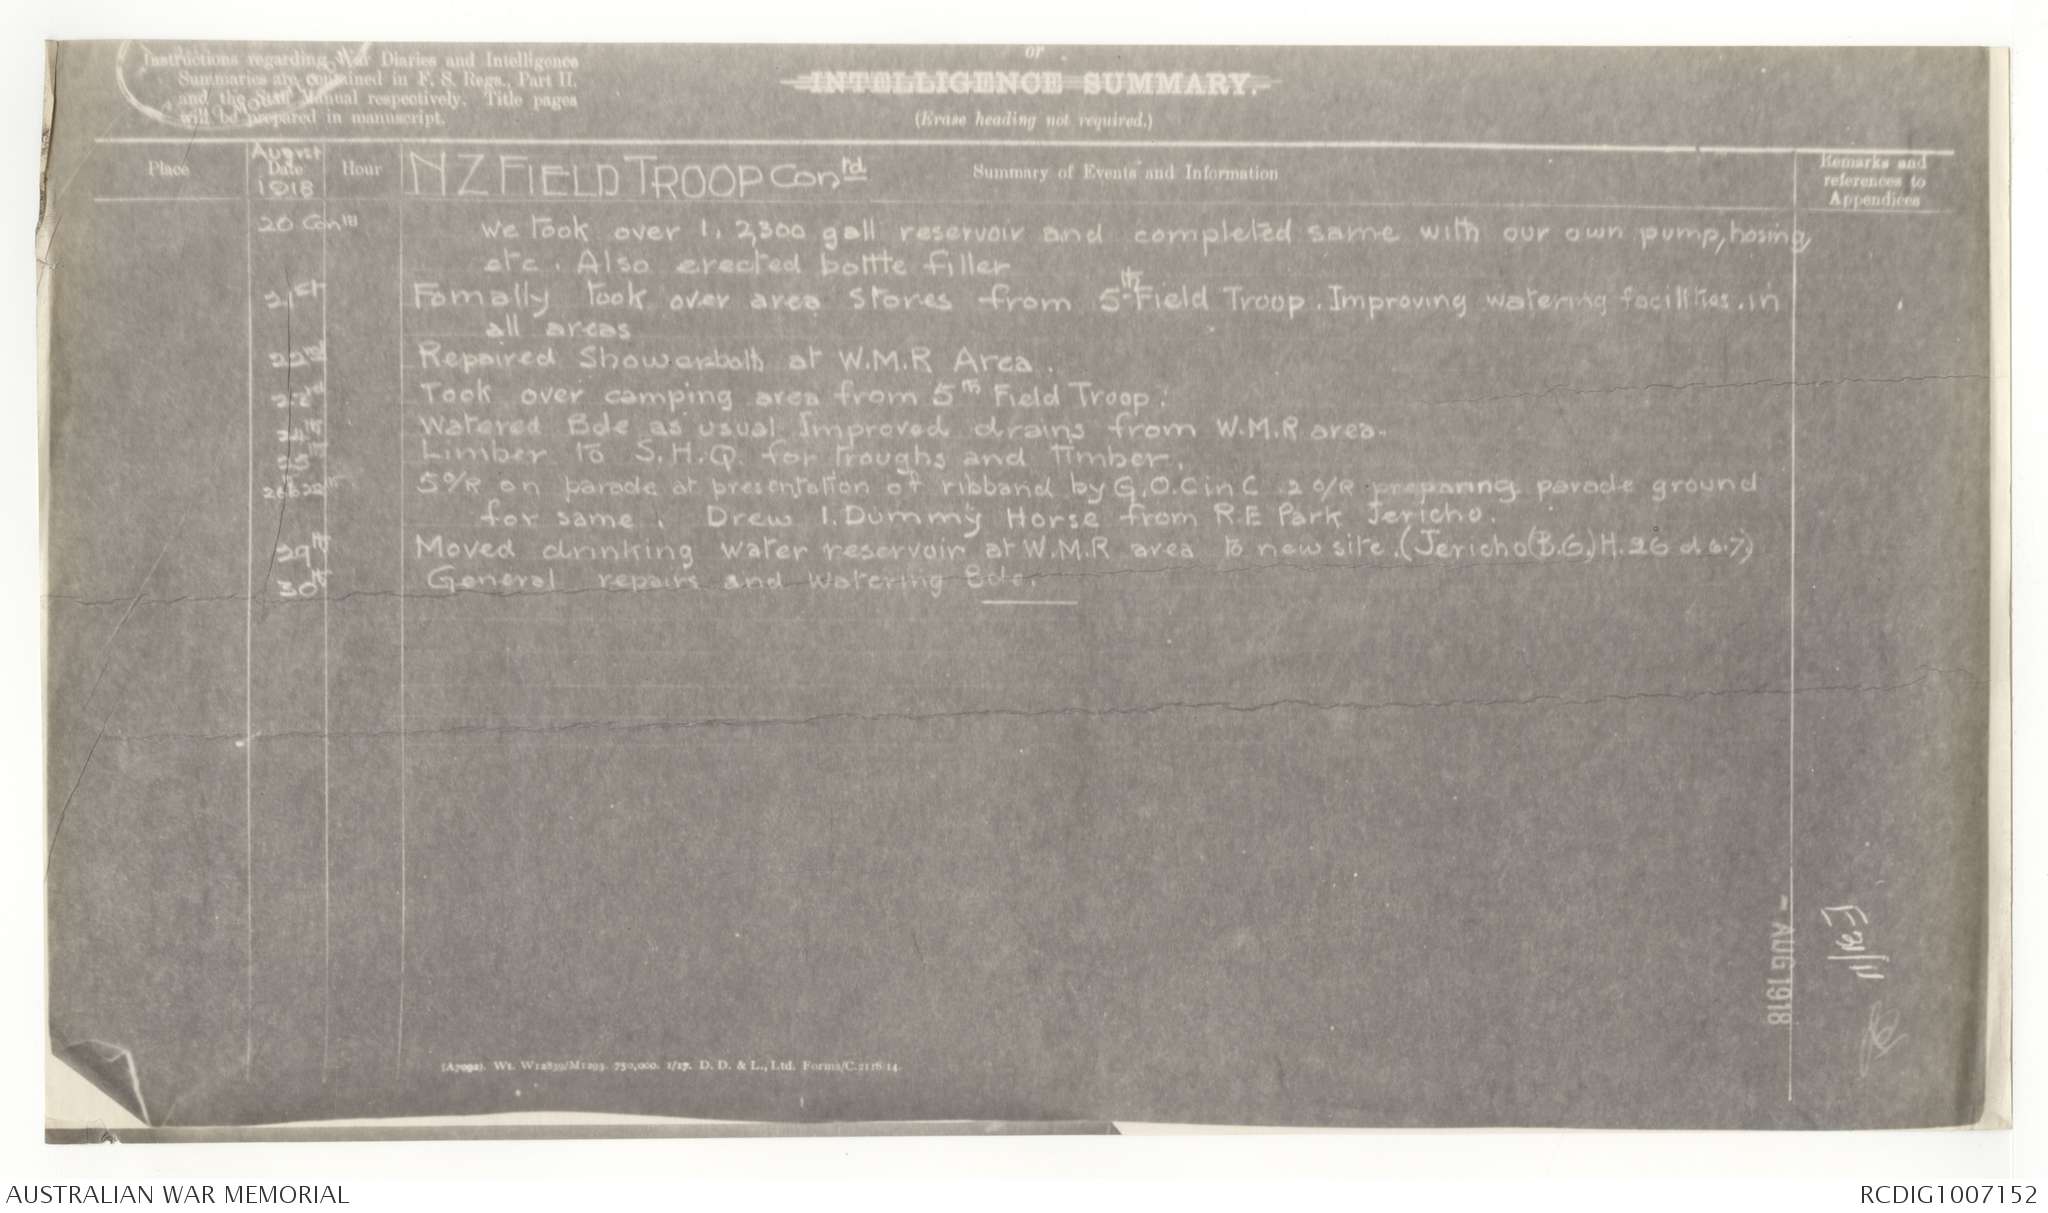 Instructions regarding War Diaries and Intelligence
Summaries are contained in F. S. Regs., Part II.
and the Staff Manual respectively. Title pages
will be prepared in manuscript.
or
INTELLIGENCE SUMMARY.
(Erase heading not required.)
Place
August
Date
1918
Hour
NZ FIELD TROOP Con td
Summary of Events and Information
Remarks and
references to
Appendices
20 Con td we took over 1, 2,300 gall reservoir and completed same with our own pump, hosing,
etc. Also erected bottle filler
21st Fomally took over area stores from 5th Field Troop. Improving watering facilities. in
all areas
22nd Repaired Showerbath at W.M.R Area.
Took over camping area from 5th Field Troop.
24th Watered Bde as usual Improved drains from W.M.R area.
25th Limber to S.H.Q. for troughs and timber.
5 O/R on parade at presentation of ribband by G.O.C in C 2 O/R preparing parade ground
for same. Drew 1. Dummy Horse from R.E Park Jericho.
29th Moved drinking water reservoir at W.M.R area to new site. (Jericho (B.G.) H. 26 d 6.7)
30th General repairs and watering Bde.
- AUG 1918
(A7092). Wt. W12839/M1293. 750,000. 1/17. D. D. & L., Ltd. Forms/C.2118/14.
AUSTRALIAN WAR MEMORIAL
RCDIG1007152